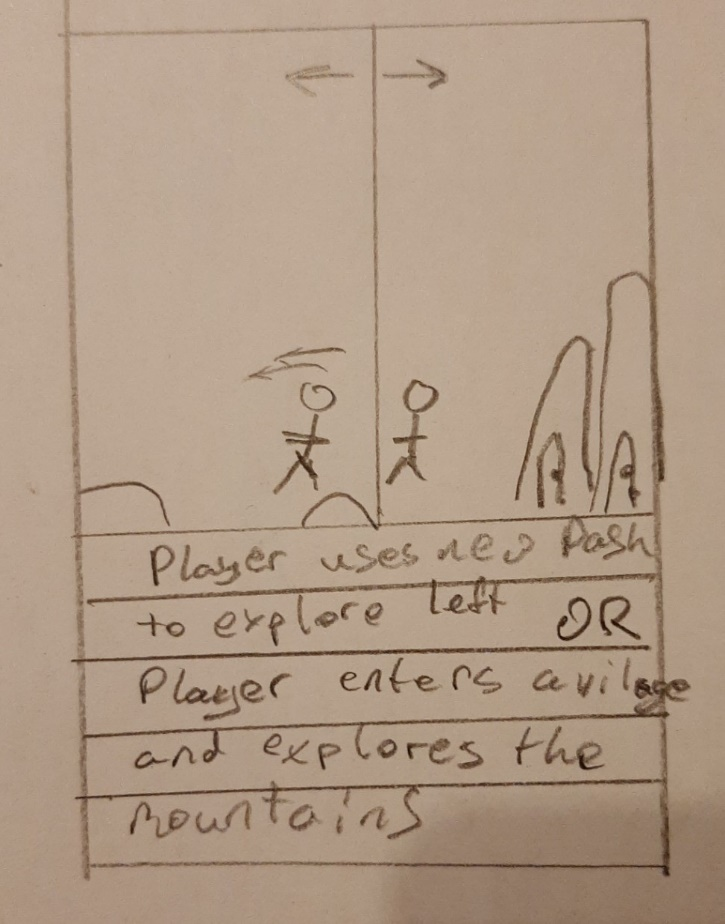 Player uses new Dash
to explore left OR
Player enters a vilage
and explores the
mountains